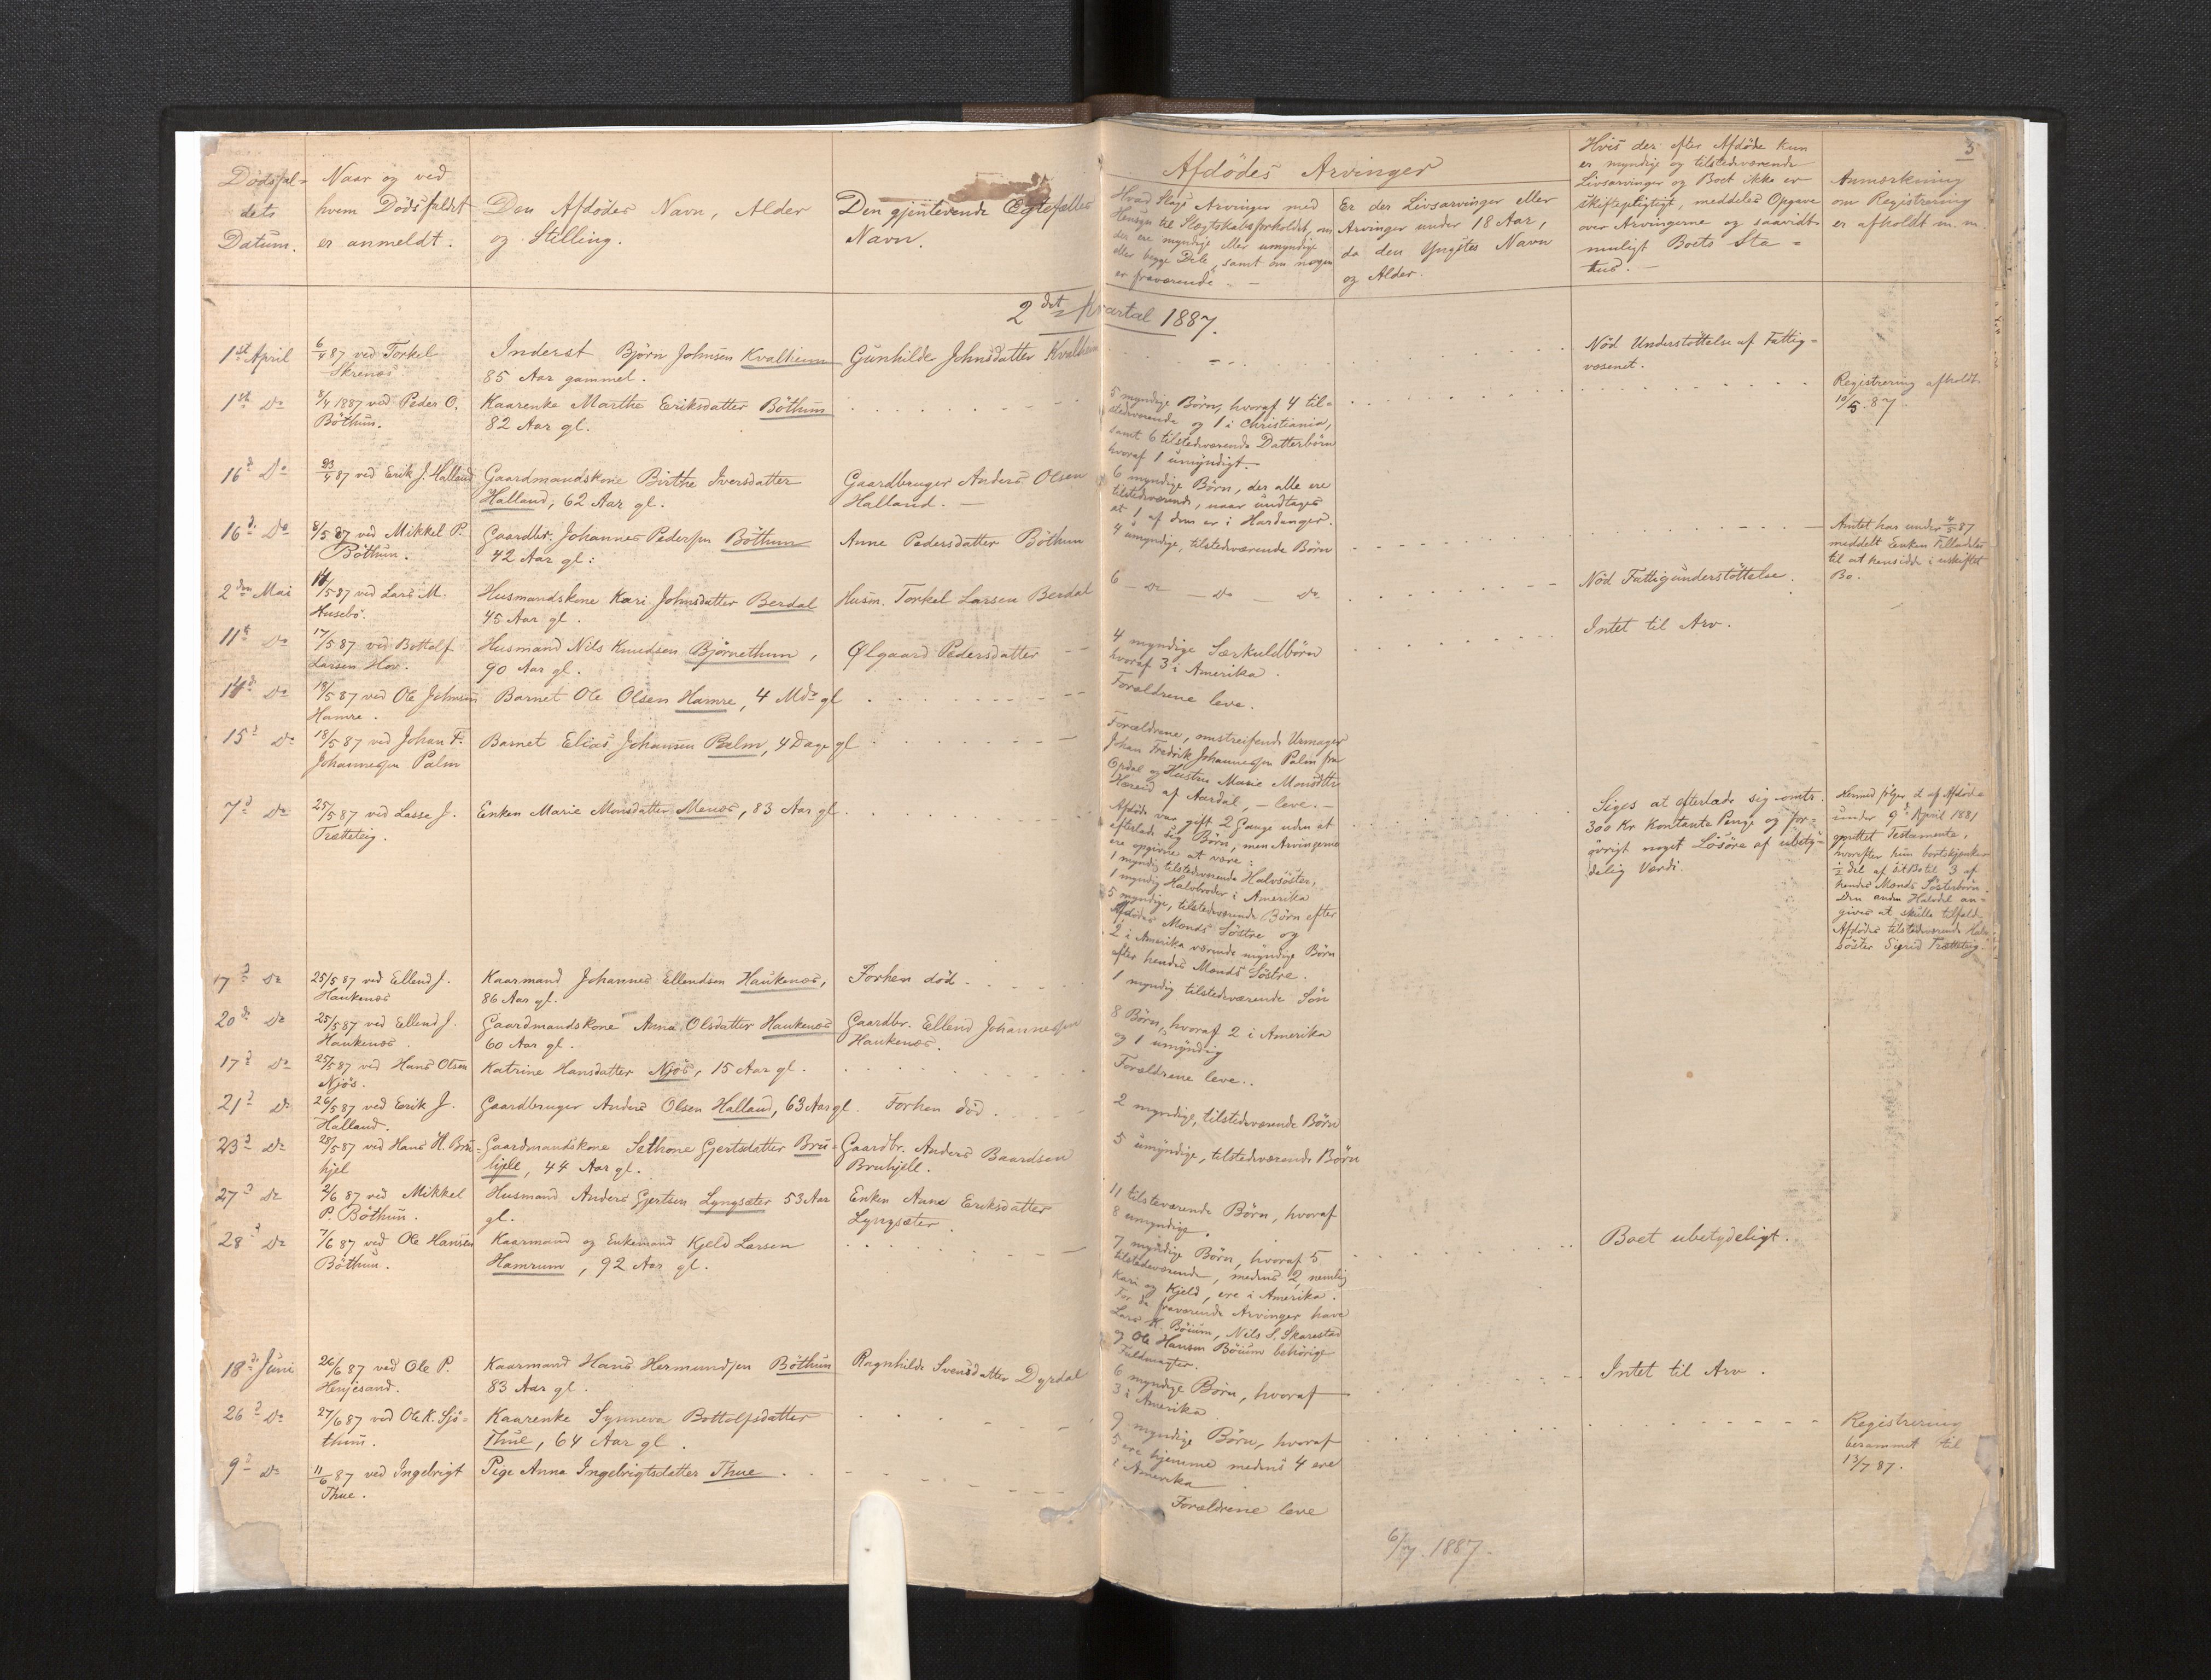 3
Dödsfal-
dets
Datum.
Naar og ved
hvem Dödsfaldet
er anmeldt.
Den Afdödes Navn, Alder
og Stilling.
Den gjenlevende Egtefælles
Navn.
Afdödes Arvinger
Hvad Slags Arvinger med
Hensyn til Slægtskabsforholdet, om
de ere myndige eller umyndige
eller begge Dele, samt om nogen
er fraværende. -
Er der Livsarvinger eller
Arvinger under 18 Aar,
da den Yngstes Navn
og Alder.
Hvis der efter Afdöde kun
er myndige og tilstedeværende
Livsarvinger og Boet ikke er
skiftepligtigt, meddeles Opgave
over Arvingerne og saavidt
muligt Boets Sta-
tus. -
Anmærkning
om Registrering
er afholdt m. m.
2det Kvartal 1887.
1st April
6/4 87 ved Torkel
Skrenes
Inderst Björn Johnsen Kvalheim
85 Aar gammel.
Gunhilde Johnsdatter Kvalheim
Nöd Understöttelse af Fattig-
væsenet.
1st Do
8/4 1887 ved Peder O.
Böthun.
Kaarenke Marthe Eriksdatter Böthun
82 Aar gl.
5 myndige Börn, hvoraf 4 til-
stedeværende og 1 i Christiania,
samt 6 tilstedeværende Datterbörn
hvoraf 1 umyndigt.
Registrering afholdt
10/5. 87
16d Do
23/4 87 ved Erik J. Halland
Gaardmandskone Birthe Iversdatter
Halland, 62 Aar gl.
Gaardbruger Anders Olsen
Halland. -
6 myndige Börn, der alle ere
tilstedeværende, naar undtages
at 1 af dem er i Hardanger.
16d. Do
8/5 87 ved Mikkel P.
Böthun.
Gaardbr. Johannes Pedersen Böthun
42 Aar gl:
Anne Pedersdatter Böthun
4 umyndige, tilstedeværende Börn
Amtet har under 4/5 87
meddelt Enken Tilladelse
til at hensidde i uskiftet
Bo.
2den Mai
14/5 87 ved Lars M.
Husebö.
Husmandskone Kari Johnsdatter Berdal
45 Aar gl.
Husm. Torkel Larsen Berdal
6 - Do - Do - Do
Nöd Fattigunderstöttelse.
11te Do
17/5 87 ved Bottolf
Larsen Hov.
Husmand Nils Knudsen Björnethun,
90 Aar gl.
Ølgaard Pedersdatter
4 myndige Særkuldbörn
hvoraf 3 i Amerika.
Intet til Arv.
14d Do
18/5 87 ved Ole Johnsen
Hamre.
Barnet Ole Olsen Hamre, 4 Mdr gl
Forældrene leve.
15d Do
18/5 87 ved Johan F.
Johannesen Palm
Barnet Elias Johansen Palm, 4 Dage gl
Forældrene, omstreifende Urmager
Johan Fredrik Johannesen Palm fra
Opdal og Hustru Marie Monsdtr
Hæreid af Aardal, - leve. -
7d Do
25/5 87 ved Lasse J.
Trætteteig.
Enken Marie Monsdatter Menes, 83 Aar gl.
Afdöde var gift 2 Gange uden at
efterlade sig Börn, men Arvingerne
ere opgivne at være:
1 myndig tilstedeværende Halvsöster,
1 myndig Halvbroder i Amerika
5 myndige, tilstedeværende Börn efter
Afdödes Mands Söstre og
2 i Amerika værende myndige Börn
efter hendes Mands Söstre.
Siges at efterlade sig omtr.
300 Kr Kontante Penge og for-
övrigt noget Lösöre af ubety-
delig Værdi.
Hermed fölger et af Afdöde
under 9de April 1881
oprettet Testamente,
hvorefter hun bortskjænker
1/2 del af sit Bo til 3 af
hendes Mands Sösterbörn.
Den anden Halvdel an-
gives at skulle tilfalde
Afdödes tilstedeværende Halv-
söster Sigrid Trætteteig.
17d Do
25/5 87 ved Ellend J.
Haukenes
Kaarmand Johannes Ellendsen Haukenes,
86 Aar gl.
Forhen död.
1 myndig tilstedeværende Sön
20d. Do
25/5 87 ved Ellend J.
Haukenes.
Gaardmandskone Anna Olsdatter Haukenes
60 Aar gl.
Gaardbr. Ellend Johannesen
Haukenes.
8 Börn, hvoraf 2 i Amerika
og 1 umyndig
17d Do
25/5 87 ved Hans Olsen
Njös.
Katrine Hansdatter Njös, 15 Aar gl.
Forældrene leve..
21d Do
26/5 87 ved Erik J.
Halland.
Gaardbruger Anders Olsen Halland, 63 Aar gl.
Forhen död.
2 myndige, tilstedeværende Börn
23d Do
28/5 87 ved Hans H. Bru-
hjel
Gaardmandskone Sethone Gjertsdatter Bru-
hjell, 44 Aar gl.
Gaardbr. Anders Baardsen
Bruhjell.
5 umyndige, tilstedeværende Börn
27d Do
2/6 87 ved Mikkel
P. Böthun.
Husmand Anders Gjertsen Lyngsæter 53 Aar
gl.
Enken Anne Eriksdatter
Lyngsæter.
11 tilsteværende Börn, hvoraf
8 umyndige.
28d Do
7/6 87 ved Ole Hansen
Böthun.
Kaarmand og Enkemand Kjeld Larsen
Hamrum, 92 Aar gl.
7 myndige Börn, hvoraf 5
tilstedeværende, medens 2, nemlig
Kari og Kjeld, ere i Amerika.
For de fraværende Arvinger have
Lars K. Böium, Nils S. Skarestad
og Ole Hansen Böium behörige
Fuldmagter.
Boet ubetydeligt.
18d Juni
26/6 87 ved Ole P.
Henjesand.
Kaarmand Hans Hermundsen Böthun
83 Aar gl.
Ragnhilde Svensdatter Dyrdal
6 myndige Börn, hvoraf
3 i Amerika
Intet til Arv.
26d Do
27/6 87 ved Ole K. Sjö-
thun.
Kaarenke Synneva Bottolfsdatter
Thue, 64 Aar gl.
9 myndige Börn, hvoraf
5 ere hjemme medens 4 ere
i Amerika
Registrering
berammet til
13/7 87.
9d Do
11/6 87 ved Ingebrigt
Thue.
Pige Anna Ingebrigtsdatter Thue.
Forældrene leve
6/7. 1887.